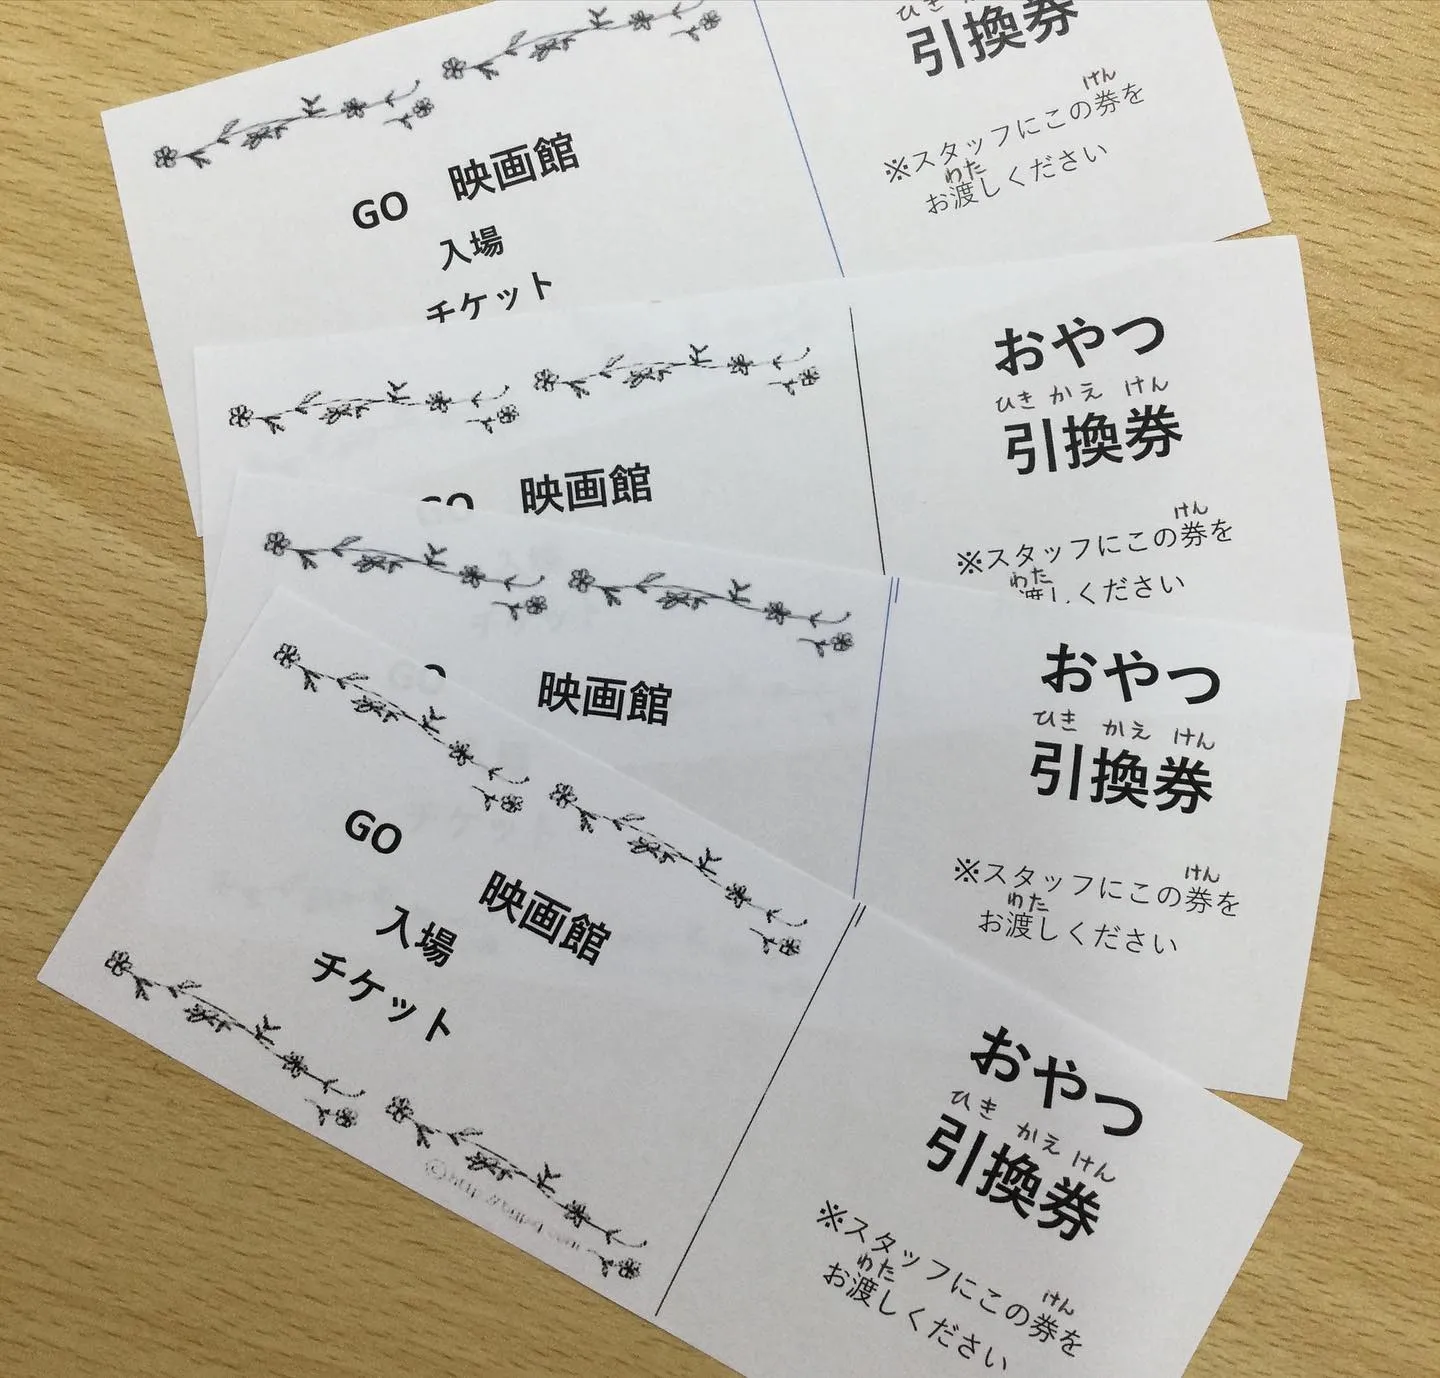 GO 映画館
入場
チケット
ひき
引換券
けん
※スタッフにこの券を
わた
お渡しください
GO 映画館
おやつ
ひき かえ けん
引換券
けん
※スタッフにこの券を
わた
渡しください
映画館
おやつ
ひき かえ けん
引換券
けん
※スタッフにこの券を
わた
お渡しください
GO 映画館
入場
チケット
おやつ
ひき かえ けん
引換券
けん
※スタッフにこの券を
わた
お渡しください